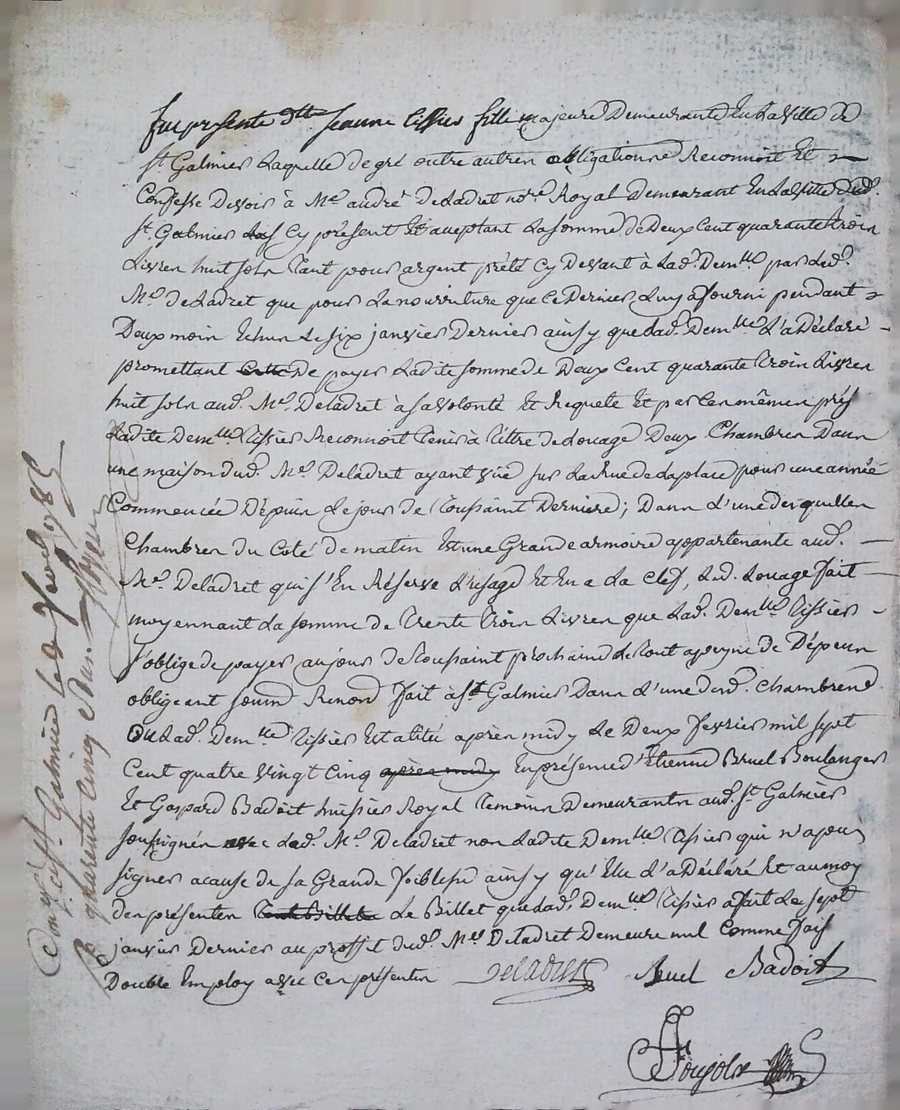 fut présente dlle jeanne tissier fille majeure Demeurante En La Ville de
st. Galmier Laquelle de gré outre autres obligations Reconnoit Et
Confesse Devoir à Me. andré Deladret nore. Royal Demeurant En La Ville dud.
st. Galmier Cy présent Et aceptant La somme de Deux Cent quarante trois
Livres huit sols tant pour argent prété Cy Devant à Lad. Demlle. par Led.
Me. deladret que pour La nourriture que Ce Dernier Luy a fourni pendant
Deux mois Echus Le six janvier Dernier ainsy que Lad. Demlle L'a Déclaré
promettant de payer Ladite somme de Deux Cent quarante trois Livres
huit sols aud. Me. Deladret à sa volonté Et Requete Et par Ces mêmes prés
Ladite Demlle tissier Reconnoit tenir à titre de Louage Deux Chambres Dans
une maison dud. Me. Deladret ayant vüe sur La Rue de La place pour une année
Commencée Dépuis Le jour de toussaint Dernière; Dans L'une desquelles
Chambres du Coté de matin Est une Grande armoire appartenante aud.
Me. Deladret qui s'En Réserve L'usage Et En a La Clef, Led. Louage fait
moyennant La somme de trente trois Livres que Lad. Demlle tissier
s'oblige de payer au jour de toussaint prochaine de tout a peyne de Dépens
obligeant soumd. Renond. fait à st Galmier Dans L'une desd. Chambres
Où Lad. Demlle tissier Est alitée après midy Le Deux fevrier mil sept
Cent quatre vingt Cinq après midy En présence d'Etienne Bruel Boulanger
Et Gaspard Badoit huissier Royal temoins Demeurants aud. st. Galmier
soussignés avec Led. Me. Deladret non Ladite Demlle tissier qui n'a pou
signer a cause de sa Grande foiblesse ainsy qu'Elle L'a Déclaré Et au moy
des présentes Le Billet que Lad. Demlle tissier a fait Le sept
janvier Dernier au proffit dud. Me. Deladret Demeure nul Comme fais
Double Employ avec Ces présentes Deladret Bruel Badoit
Poujols
à st. Galmier Le 2 fevr. 1785
quarante Cinq sols